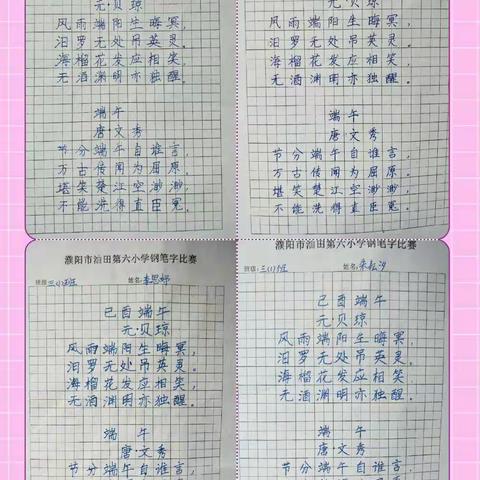 元·贝琼
风雨端阳生晦冥，
汨罗无处吊英灵。
海榴花发应相笑，
无酒渊明亦独醒。
端午
唐·文秀
节分端午自谁言，
万古传闻为屈原。
堪笑楚江空渺渺，
不能洗得直臣冤。
元·贝琼
风雨端阳生晦冥，
汨罗无处吊英灵。
海榴花发应相笑，
无酒渊明亦独醒。
端午
唐·文秀
节分端午自谁言，
万古传闻为屈原。
堪笑楚江空渺渺，
不能洗得直臣冤。
濮阳市油田第六小学钢笔字比赛
班级:三(1)班 姓名:李思妤
己酉端午
元·贝琼
风雨端阳生晦冥，
汨罗无处吊英灵。
海榴花发应相笑，
无酒渊明亦独醒。
端 午
唐·文秀
节分端午自谁言，
濮阳市油田第六小学钢笔字比赛
班级:三(1)班 姓名:
己酉端午
元·贝琼
风雨端阳生晦冥，
汨罗无处吊英灵。
海榴花发应相笑，
无酒渊明亦独醒。
端 午
唐·文秀
节分端午自谁言，